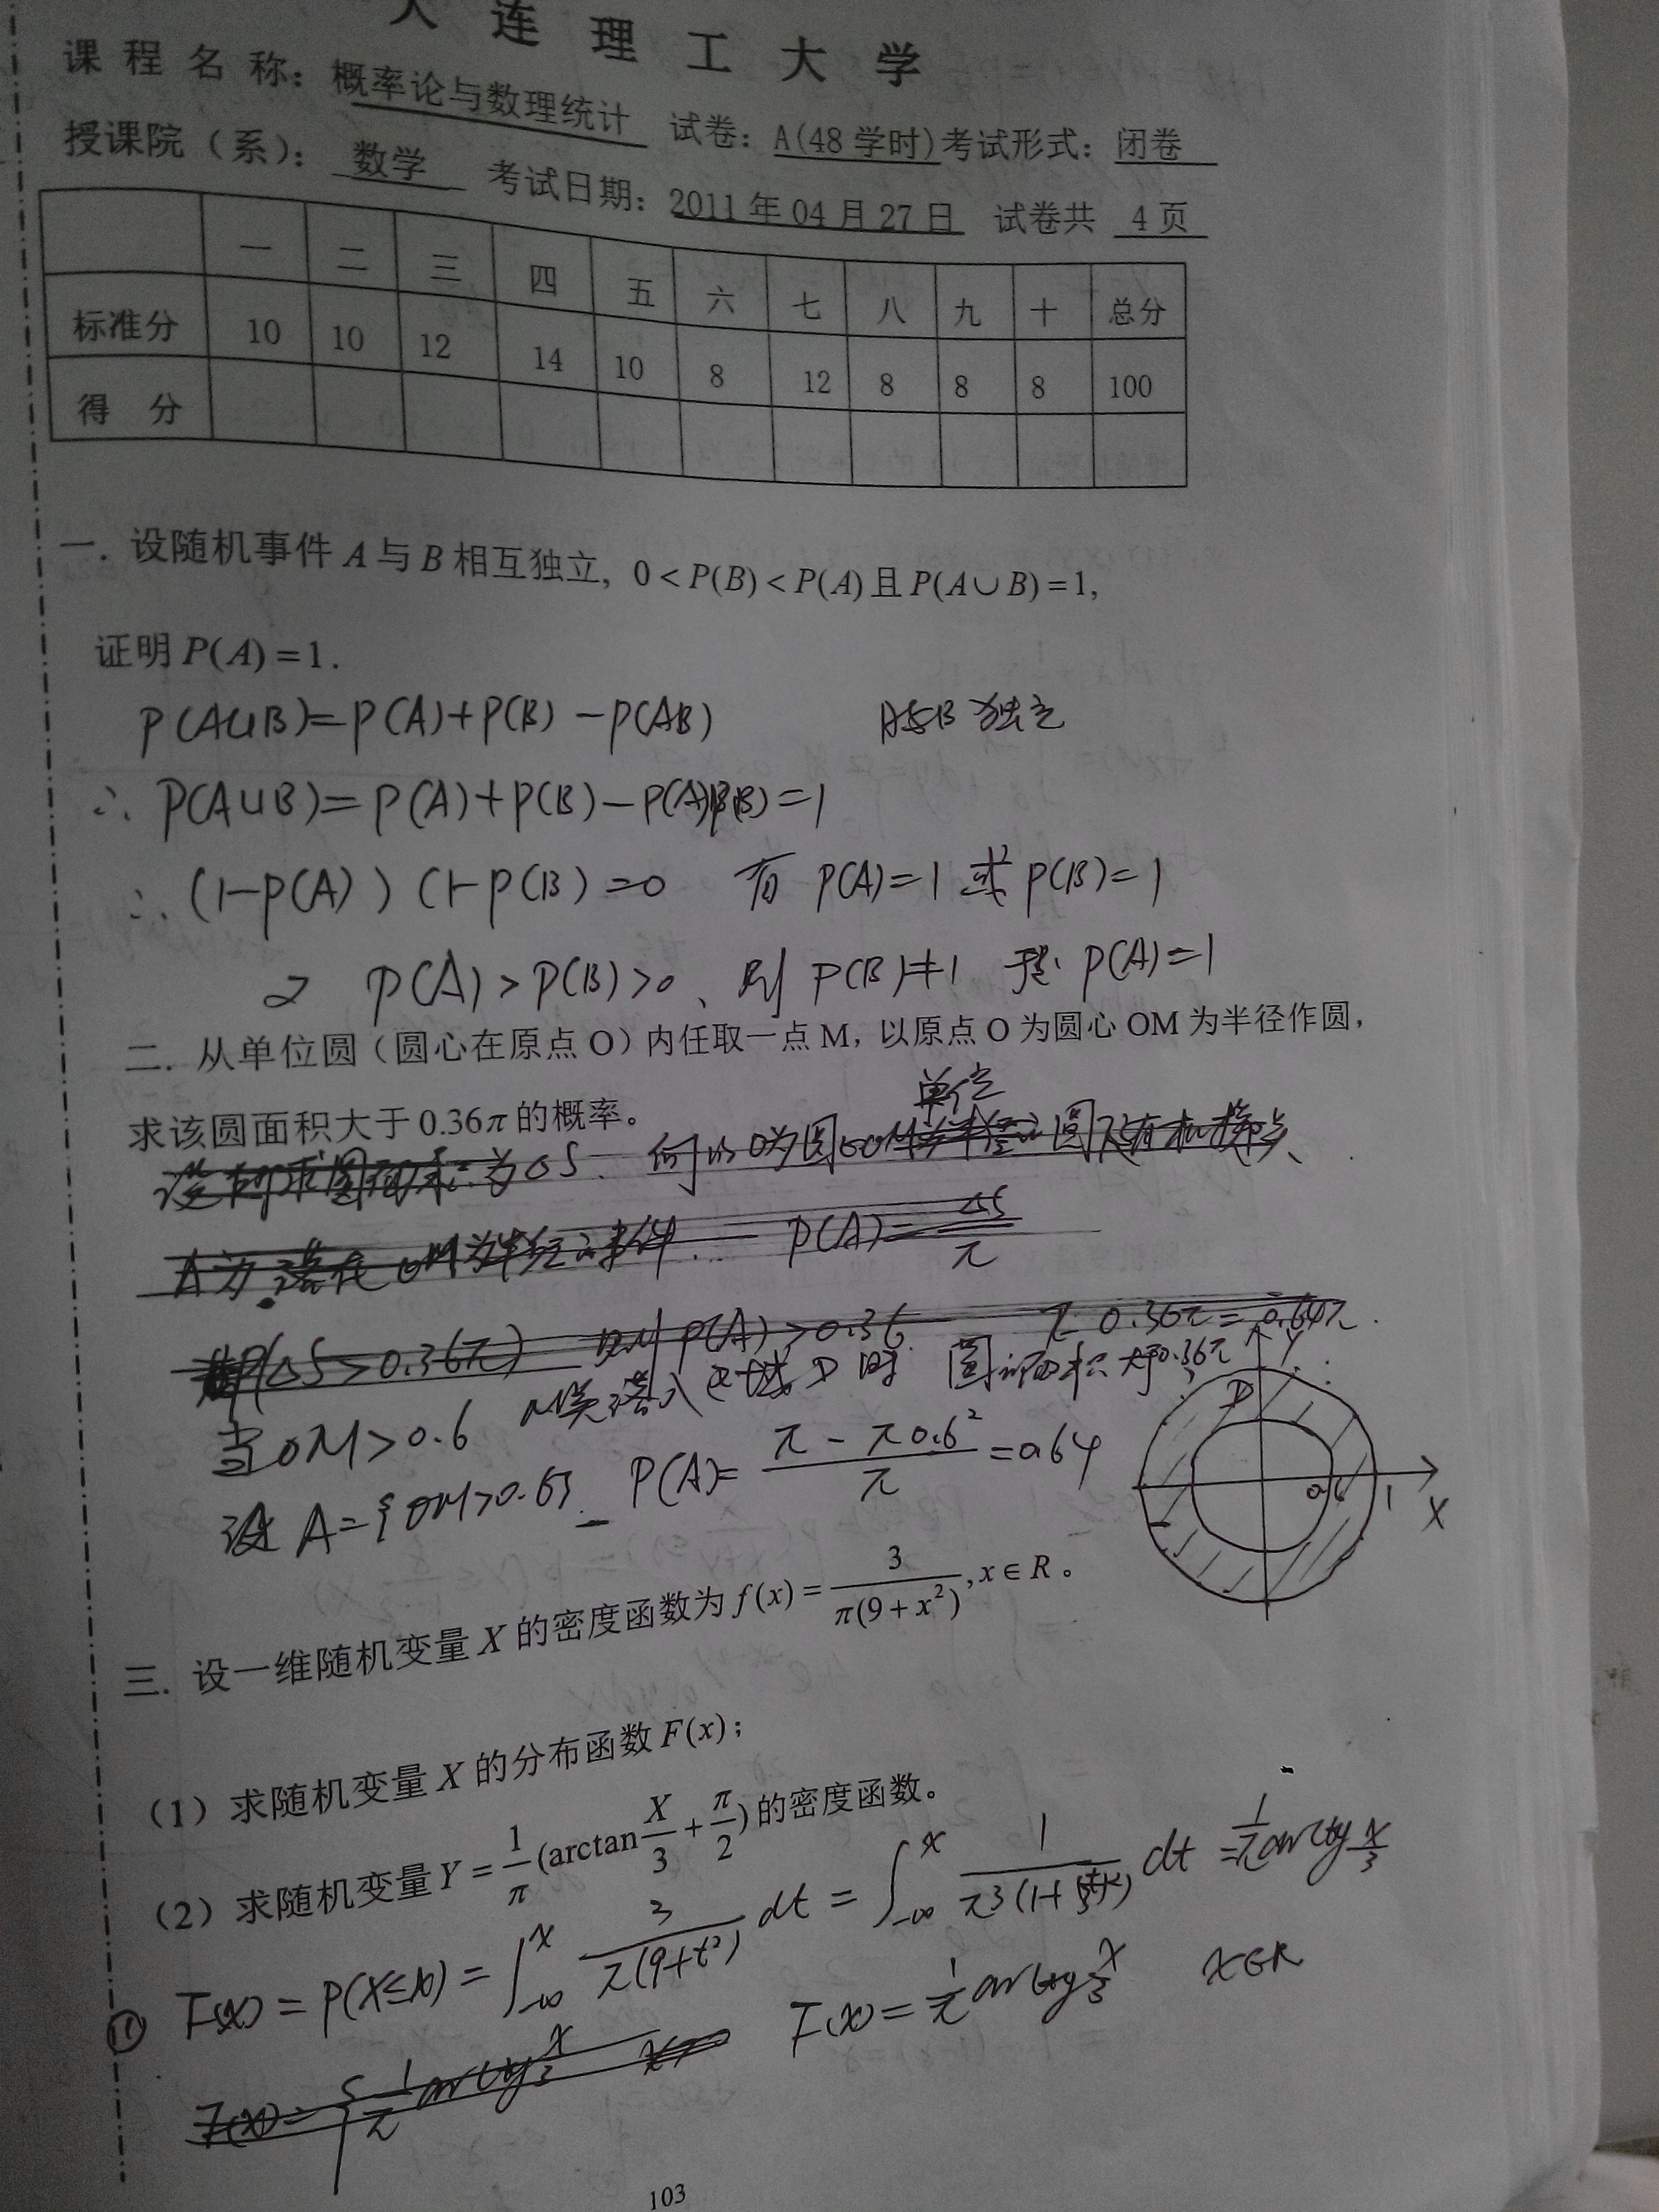 大 连 理 工 大 学
课 程 名 称： 概率论与数理统计 试卷： A(48 学时) 考试形式： 闭卷
授课院（系）： 数学 考试日期： 2011 年 04 月 27 日 试卷共 4 页
一 二 三 四 五 六 七 八 九 十 总分
标准分 10 10 12 14 10 8 12 8 8 8 100
得 分
一. 设随机事件 A 与 B 相互独立, 0 < P(B) < P(A) 且 P(A∪B) = 1,
证明 P(A) = 1.
P(A∪B)=P(A)+P(B)-P(AB) A与B 独立
∴ P(A∪B)=P(A)+P(B)-P(A)P(B)=1
∴ (1-P(A))(1-P(B)=0 有 P(A)=1 或 P(B)=1
又 P(A)>P(B)>0、则 P(B)≠1 于是 P(A)=1
二. 从单位圆（圆心在原点 O）内任取一点 M, 以原点 O 为圆心 OM 为半径作圆,
求该圆面积大于 0.36π 的概率。
单位
P(A)=ΔS/π
P(ΔS>0.36π) 则 P(A)>0.36 π-0.36π=0.64π.
当 OM>0.6 M点落入区域 D 时 圆面积大于0.36π
设 A={OM>0.6} P(A)=(π-π0.6²)/π=0.64
Y
D
0.6 1 X
三. 设一维随机变量 X 的密度函数为 f(x) = 3/(π(9+x²)), x∈R 。
（1）求随机变量 X 的分布函数 F(x)；
（2）求随机变量 Y = 1/π (arctan X/3 + π/2) 的密度函数。
(1) F(x)=P(X≤x)=∫_{-∞}^{x} 3/(π(9+t²)) dt = ∫_{-∞}^{x} 1/(π3(1+(t/3)²)) dt = 1/π arctg x/3
F(x)= 1/π arctg x/3 x∈R
F(x)={ 1/π arctg x/3
103